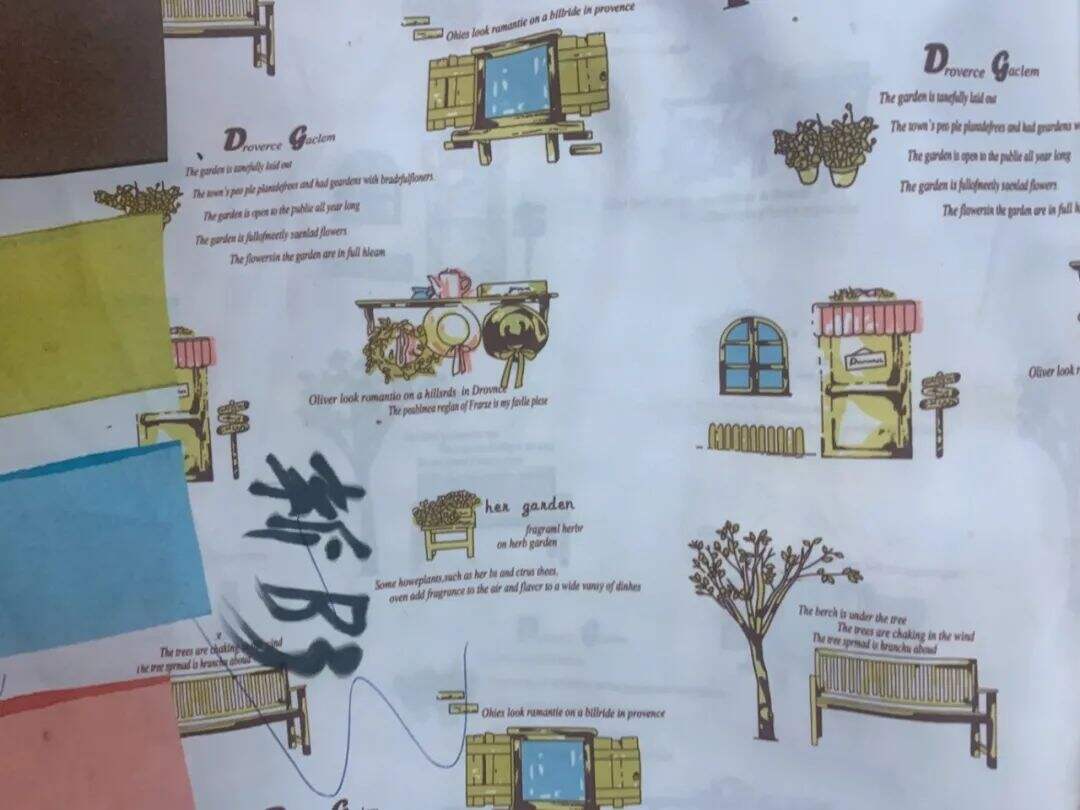 Ohies look ramantie on a billride in provence
Droverce Gaclem
The garden is tanefully laid out
The town's peo ple plantdefrees and had geardens with bradrfulfloners.
The garden is open to the publie all year long
The garden is fullofmeetly saenlad flowers
The flowersin the garden are in full hleam
Droverce Gaclem
The garden is tanefully laid out
The town's peo ple plantdefrees and had geardens w
The garden is open to the publie all year long
The garden is fullofmeetly saenlad flowers
The flowersin the garden are in full h
Oliver look romantio on a hillsrds in Drovnce
The poublmea regian of Frarse is my favlie plese
Oliver look r
her garden
fragraml herbr
on herb garden
Some howeplants,such as her bs and ctrus thees,
oven add fragrance to the air and flaver to a wide varay of dinhes
新B3
The trees are chaking in the wind
The tree sprmad is hranchu aboud
The berch is under the tree
The trees are chaking in the wind
The tree sprmad is hranchu aboud
Ohies look ramantie on a billride in provence